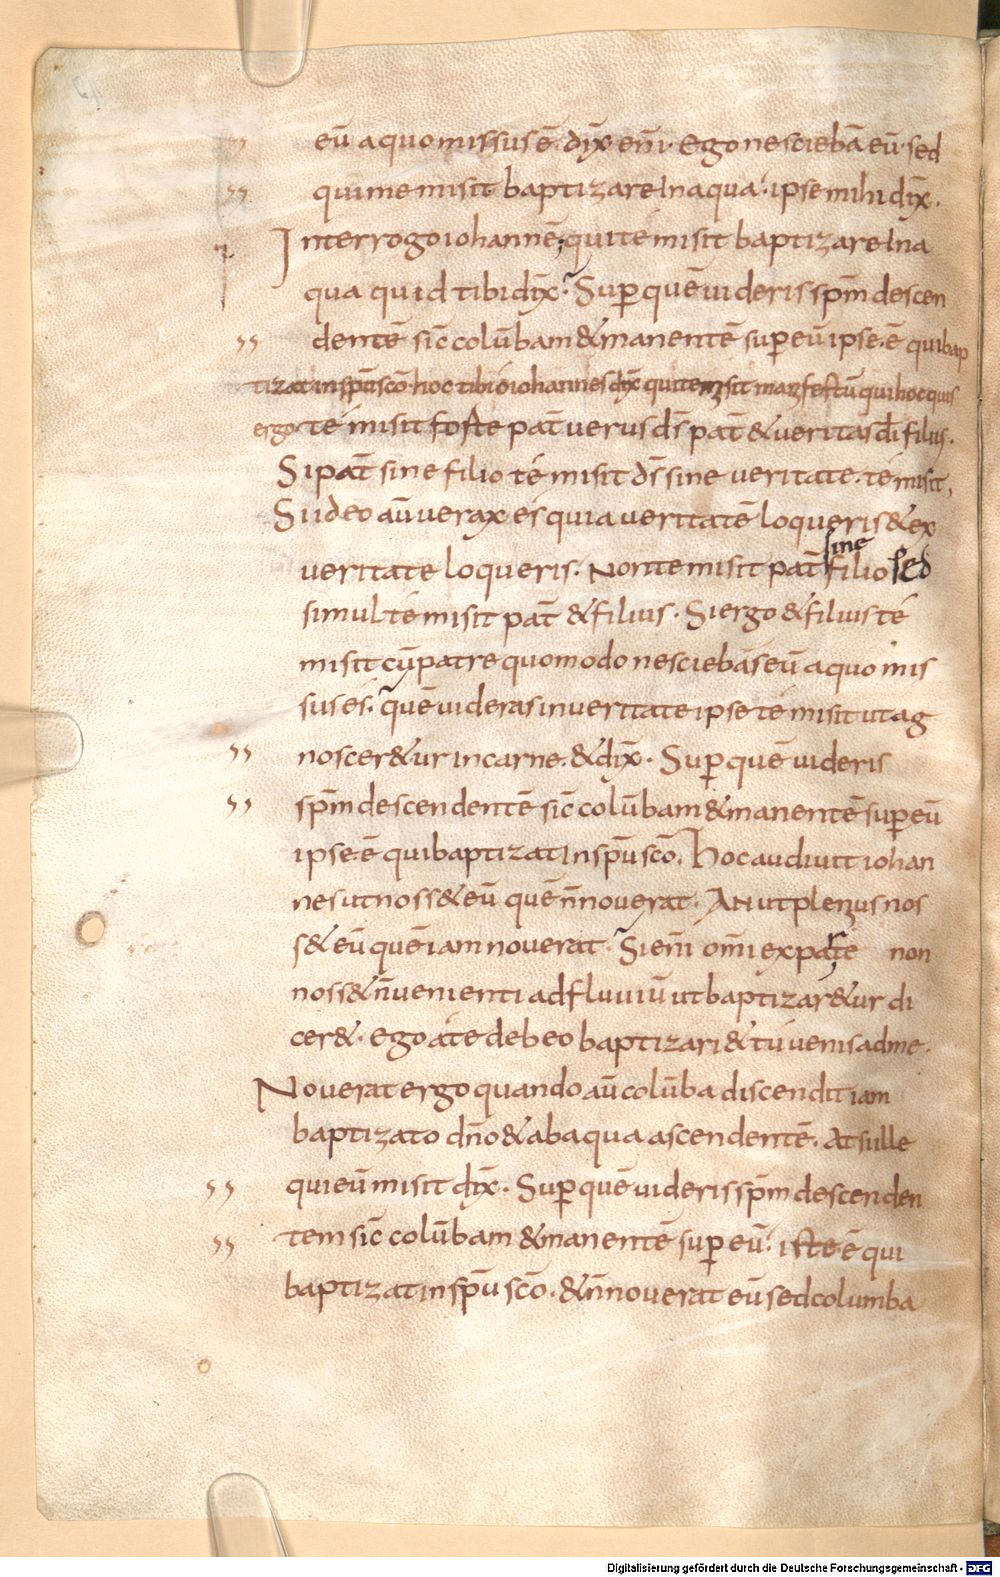 eū aquomissus ē· dix̄ eni̅· Ego nesciebā eū· sed
qui me misit baptizare In aqua· ipse mihi dix̄·
Interrogo iohannē; qui té misit baptizare In a
qua quid tibi dix̄· Super quē uideris spm̄ descen
dentē sic̄ colūbam & manentē super eū ipse ē qui bap
tizat in spū sc̄o· hoc tibi ó iohannes dix̄ qui te misit manifestū qui hoc quis
ergo té misit forte pat̄ verus ds̄ pat̄ & veritas dī filius·
Si pat̄ sine filio té misit ds̄ sine veritate· té misit,
Si ideo aū verax es quia veritatē loqueris & ex
veritate loqueris· Non te misit pat̄ sine filio sed
simul té misit pat̄ & filius· Si ergo & filius té
misit cū patre quomodo nesciebas eū a quo mis
sus és· quē uideras in veritate ipse té misit ut ag
noscer&ur in carne· & dix̄· Super quē uideris
spm̄ descendentē sic̄ colūbam & manentē super eū
ipse ē qui baptizat In spū sc̄o· Hoc audiuit iohan
nes ut noss& eū quē n̄ noverat· An ut plenius nos
s& eū quē iam noverat· Si eni̅ om̄i ex parte non
noss& n̄ venienti ad fluuiū ut baptizar&ur di
cer&· ego á te debeo baptizari & tú venis ad me·
Noverat ergo quando aū colūba discendit iam
baptizato dn̄o & ab aqua ascendentē· At si ille
qui eū misit dix̄· Super quē uideris spm̄ descenden
tem sic̄ colūbam & manentē super eū· iste ē qui
baptizat in spū sc̄o· & n̄ noverat eū sed columba
Digitalisierung gefördert durch die Deutsche Forschungsgemeinschaft - DFG